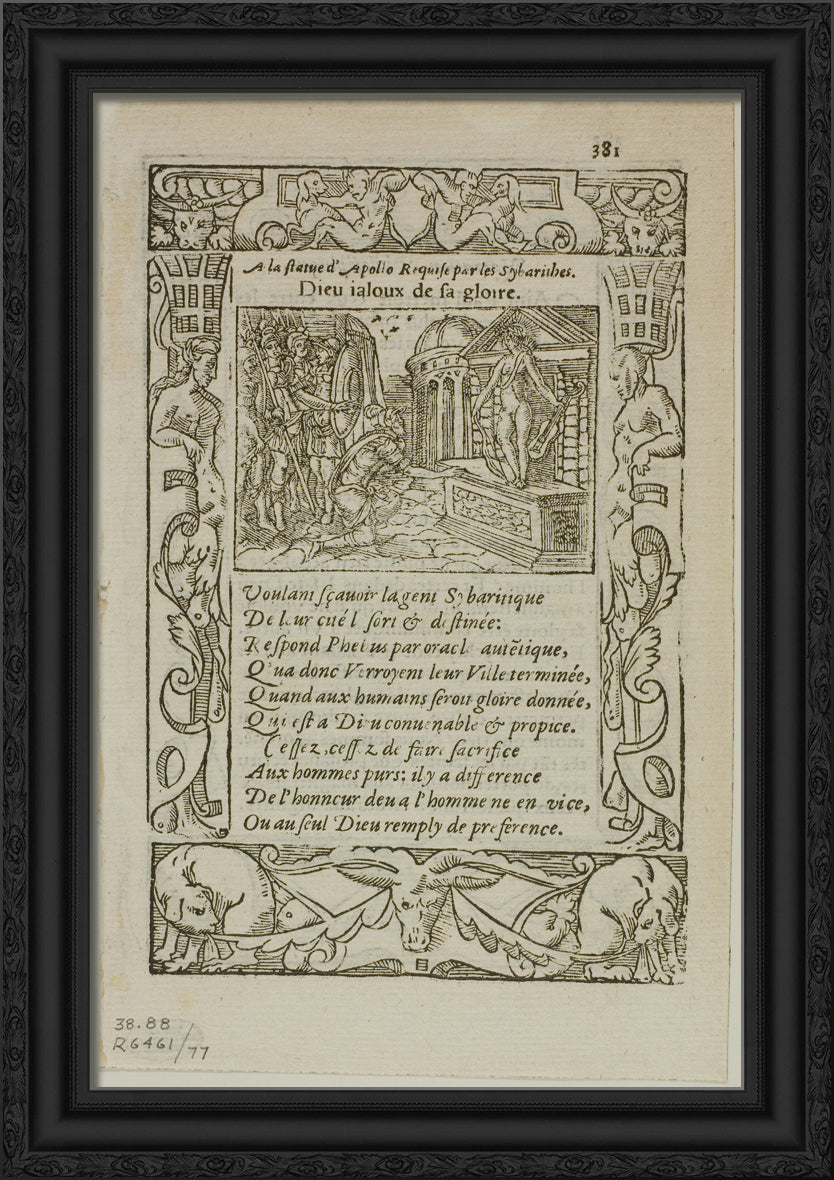 381
A la statue d'Apollo Requise par les Sybarithes.
Dieu ialoux de sa gloire.
Voulant sçauoir la gent Sybaritique
De leur cité l sort & destinée:
Respond Phebus par oracle autẽtique,
Qu'ua donc Verroyent leur Ville terminée,
Quand aux humains serou gloire donnée,
Qui est a Dieu conuenable & propice.
Cessez, cessez de faire sacrifice
Aux hommes purs: il y a difference
De l'honneur deu a l'homme ne en vice,
Ou au seul Dieu remply de preference.
38.88
R6461/77